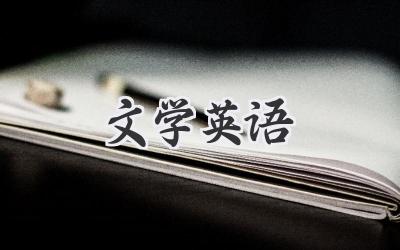 文学英语